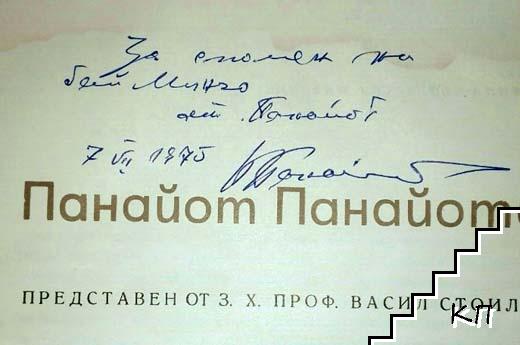 За спомен на
бай Минчо
от Панайот
7 VII 1975
Панайот Панайото
ПРЕДСТАВЕН ОТ З. Х. ПРОФ. ВАСИЛ СТОИЛ
КП